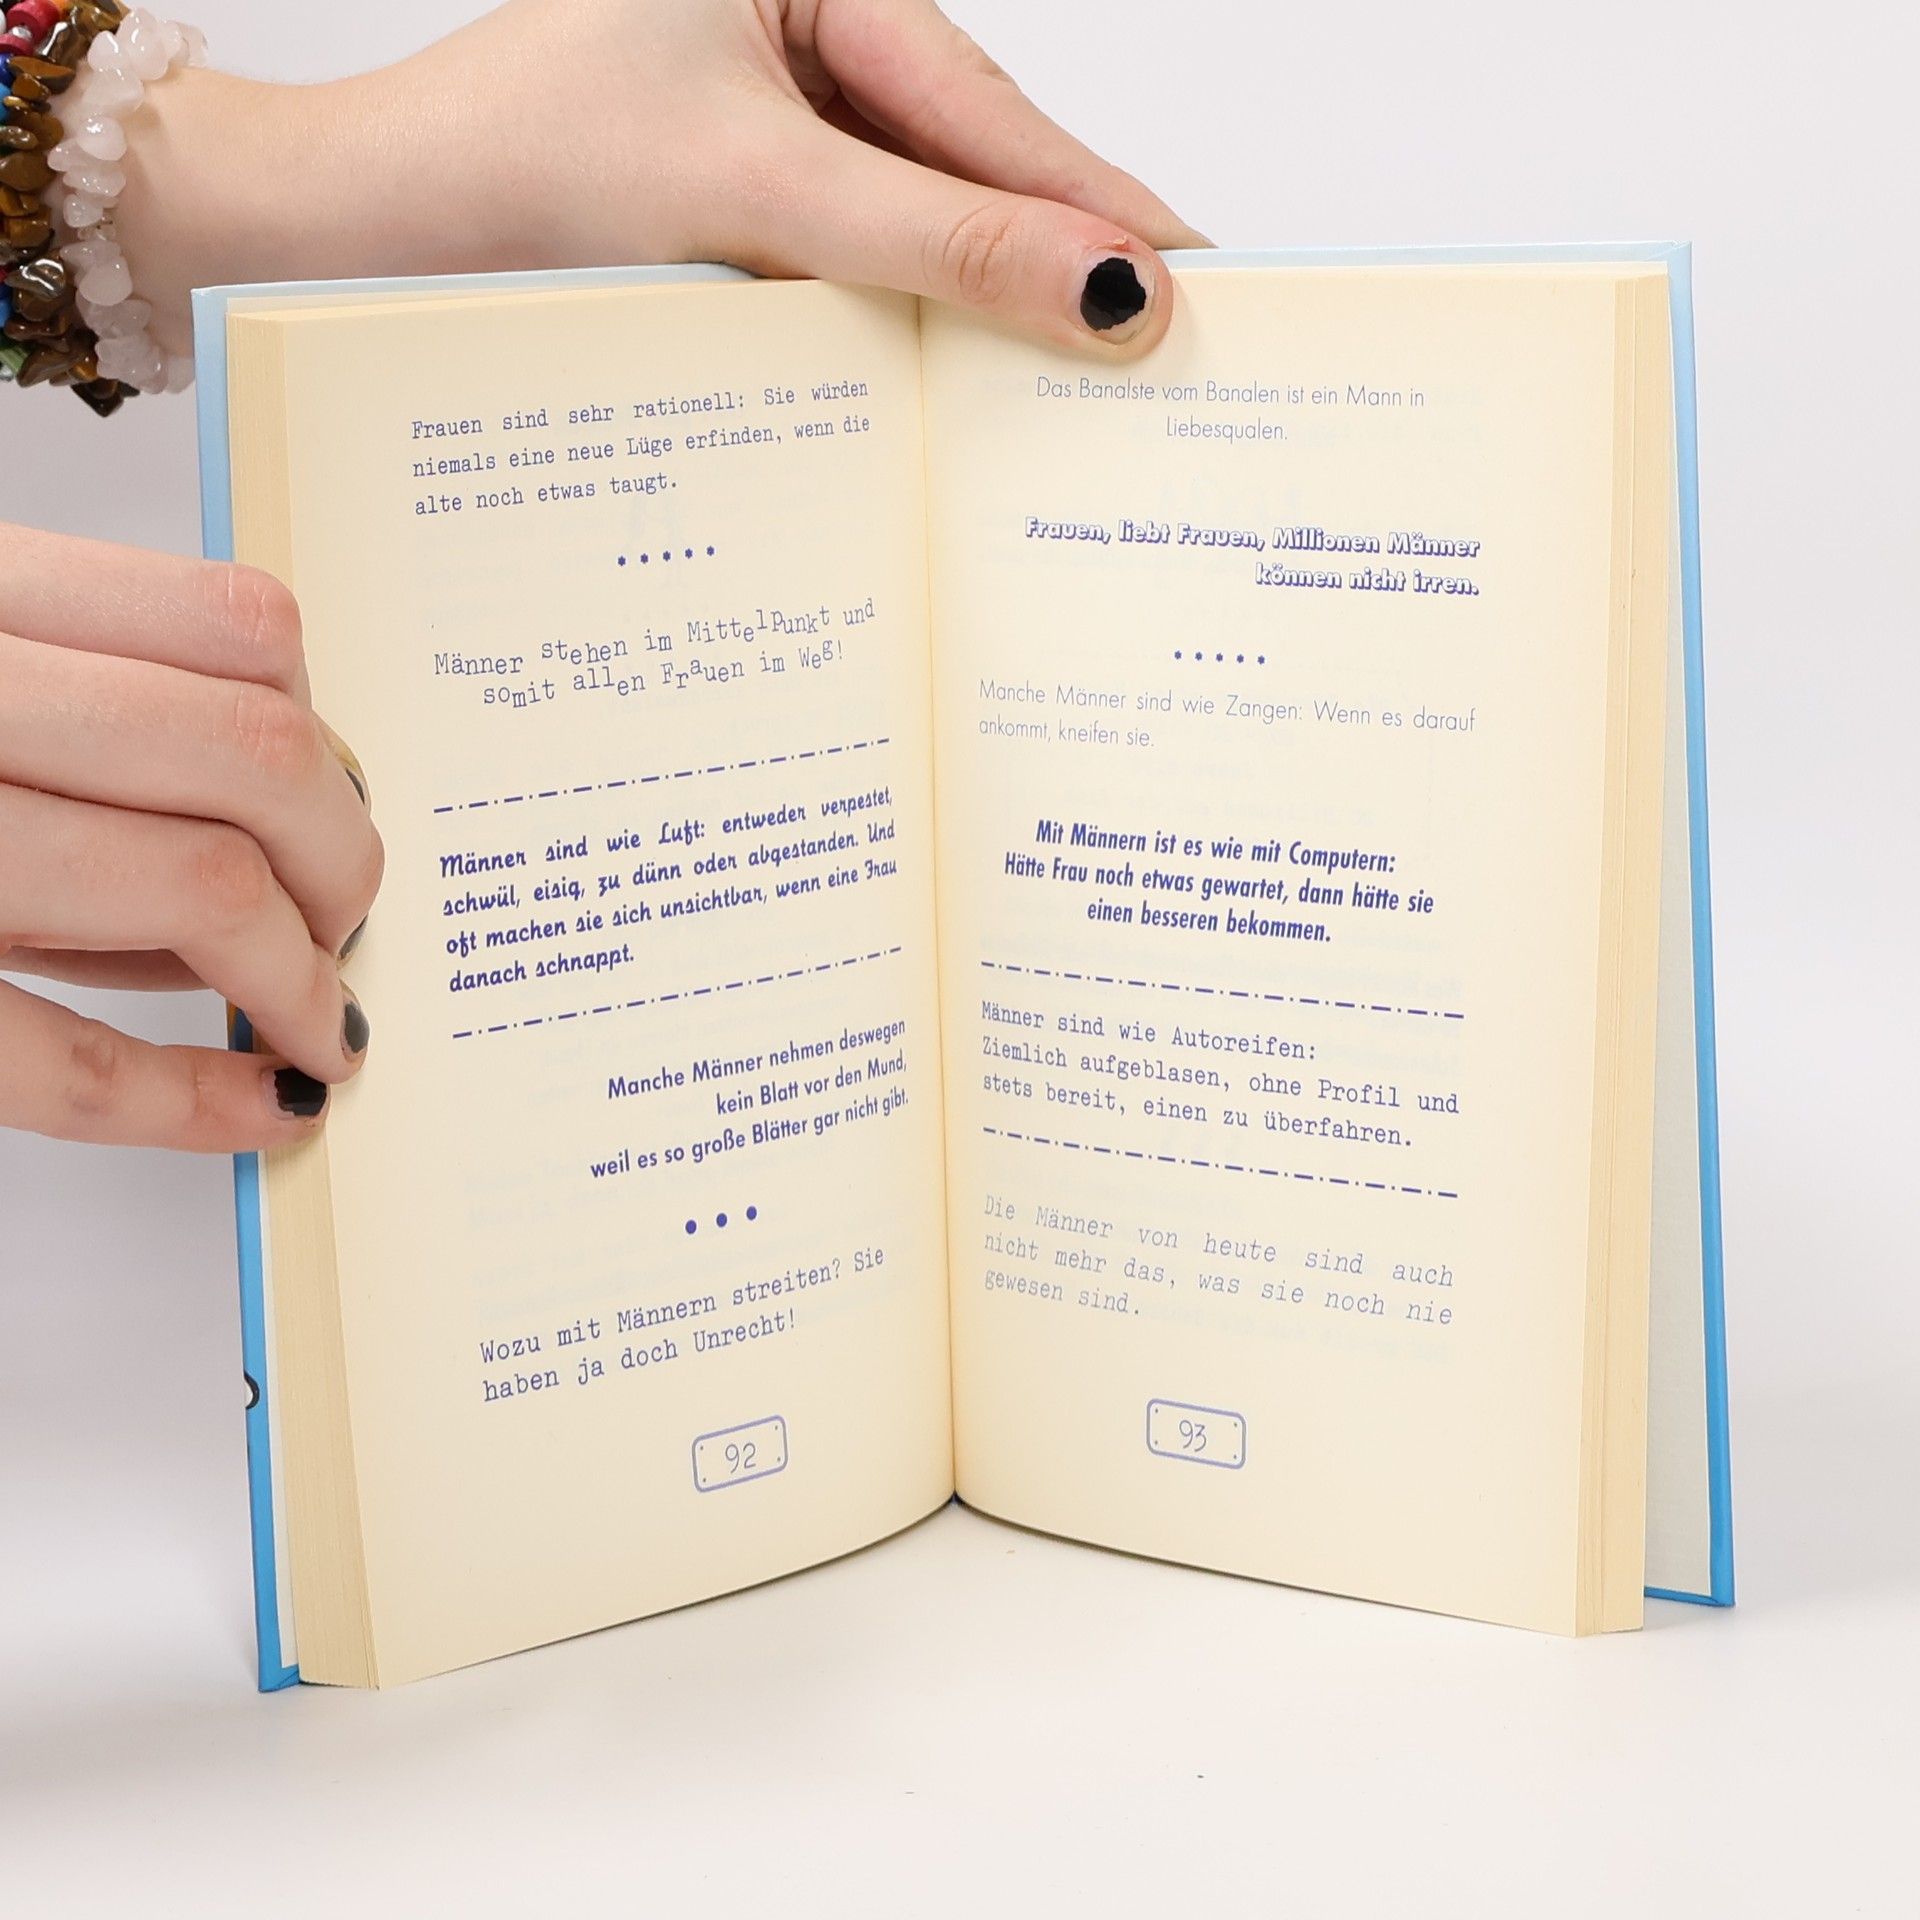 Frauen sind sehr rationell: Sie würden
niemals eine neue Lüge erfinden, wenn die
alte noch etwas taugt.
* * * * *
Männer stehen im MittelPunkt und
somit allen Frauen im Weg!
Männer sind wie Luft: entweder verpestet,
schwül, eisig, zu dünn oder abgestanden. Und
oft machen sie sich unsichtbar, wenn eine Frau
danach schnappt.
Manche Männer nehmen deswegen
kein Blatt vor den Mund,
weil es so große Blätter gar nicht gibt.
● ● ●
Wozu mit Männern streiten? Sie
haben ja doch Unrecht!
92
Das Banalste vom Banalen ist ein Mann in
Liebesqualen.
Frauen, liebt Frauen, Millionen Männer
können nicht irren.
* * * * *
Manche Männer sind wie Zangen: Wenn es darauf
ankommt, kneifen sie.
Mit Männern ist es wie mit Computern:
Hätte Frau noch etwas gewartet, dann hätte sie
einen besseren bekommen.
Männer sind wie Autoreifen:
Ziemlich aufgeblasen, ohne Profil und
stets bereit, einen zu überfahren.
Die Männer von heute sind auch
nicht mehr das, was sie noch nie
gewesen sind.
93